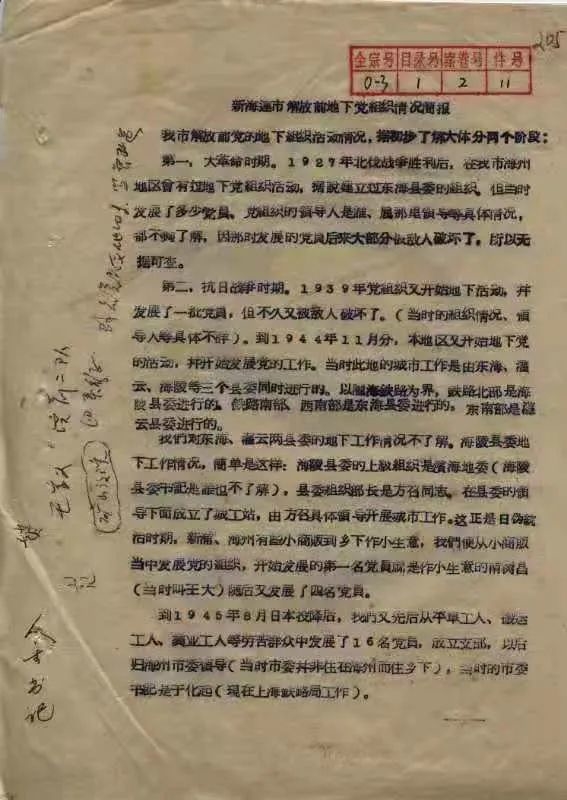 205
全宗号 目录号 案卷号 件号
0-3 1 2 11
新海连市解放前地下党组织情况简报
我市解放前党的地下组织活动情况，据初步了解大体分两个阶段：
第一，大革命时期。1927年北伐战争胜利后，在我市海州
地区曾有过地下党组织活动，据说建立过东海县委的组织。但当时
发展了多少党员、党组织的领导人是谁、属那里领导等具体情况，
都不够了解，因那时发展的党员后来大部分被敌人破坏了，所以无
据可查。
第二，抗日战争时期。1939年党组织又开始地下活动，并
发展了一批党员，但不久又被敌人破坏了。（当时的组织情况、领
导人等具体不详）。到1944年11月分，本地区又开始地下党
的活动，并开始发展党的工作。当时此地的城市工作是由东海、灌
云、海陵等三个县委同时进行的。以陇海铁路为界，铁路北部是海
陵县委进行的。铁路南部、西南部是东海县委进行的，东南部是灌
云县委进行的。
我们对东海、灌云两县委的地下工作情况不了解。海陵县委地
下工作情况，简单是这样：海陵县委的上级组织是滨海地委（海陵
县委书记是谁也不了解），县委组织部长是方召同志。在县委的领
导下面成立了城工站，由方召具体领导开展城市工作。这正是日伪统
治时期，新浦、海州有些小商贩到乡下作小生意，我们便从小商贩
当中发展党的组织，开始发展的第一名党员就是作小生意的
（当时叫王大）随后又发展了四名党员。
到1945年8月日本投降后，我们又先后从平车工人、搬运
工人、商业工人等劳苦群众中发展了16名党员，成立支部，以后
归海州市委领导（当时市委并非住在海州而住乡下）。当时的市委
书记是于化（现在上海铁路局工作）。